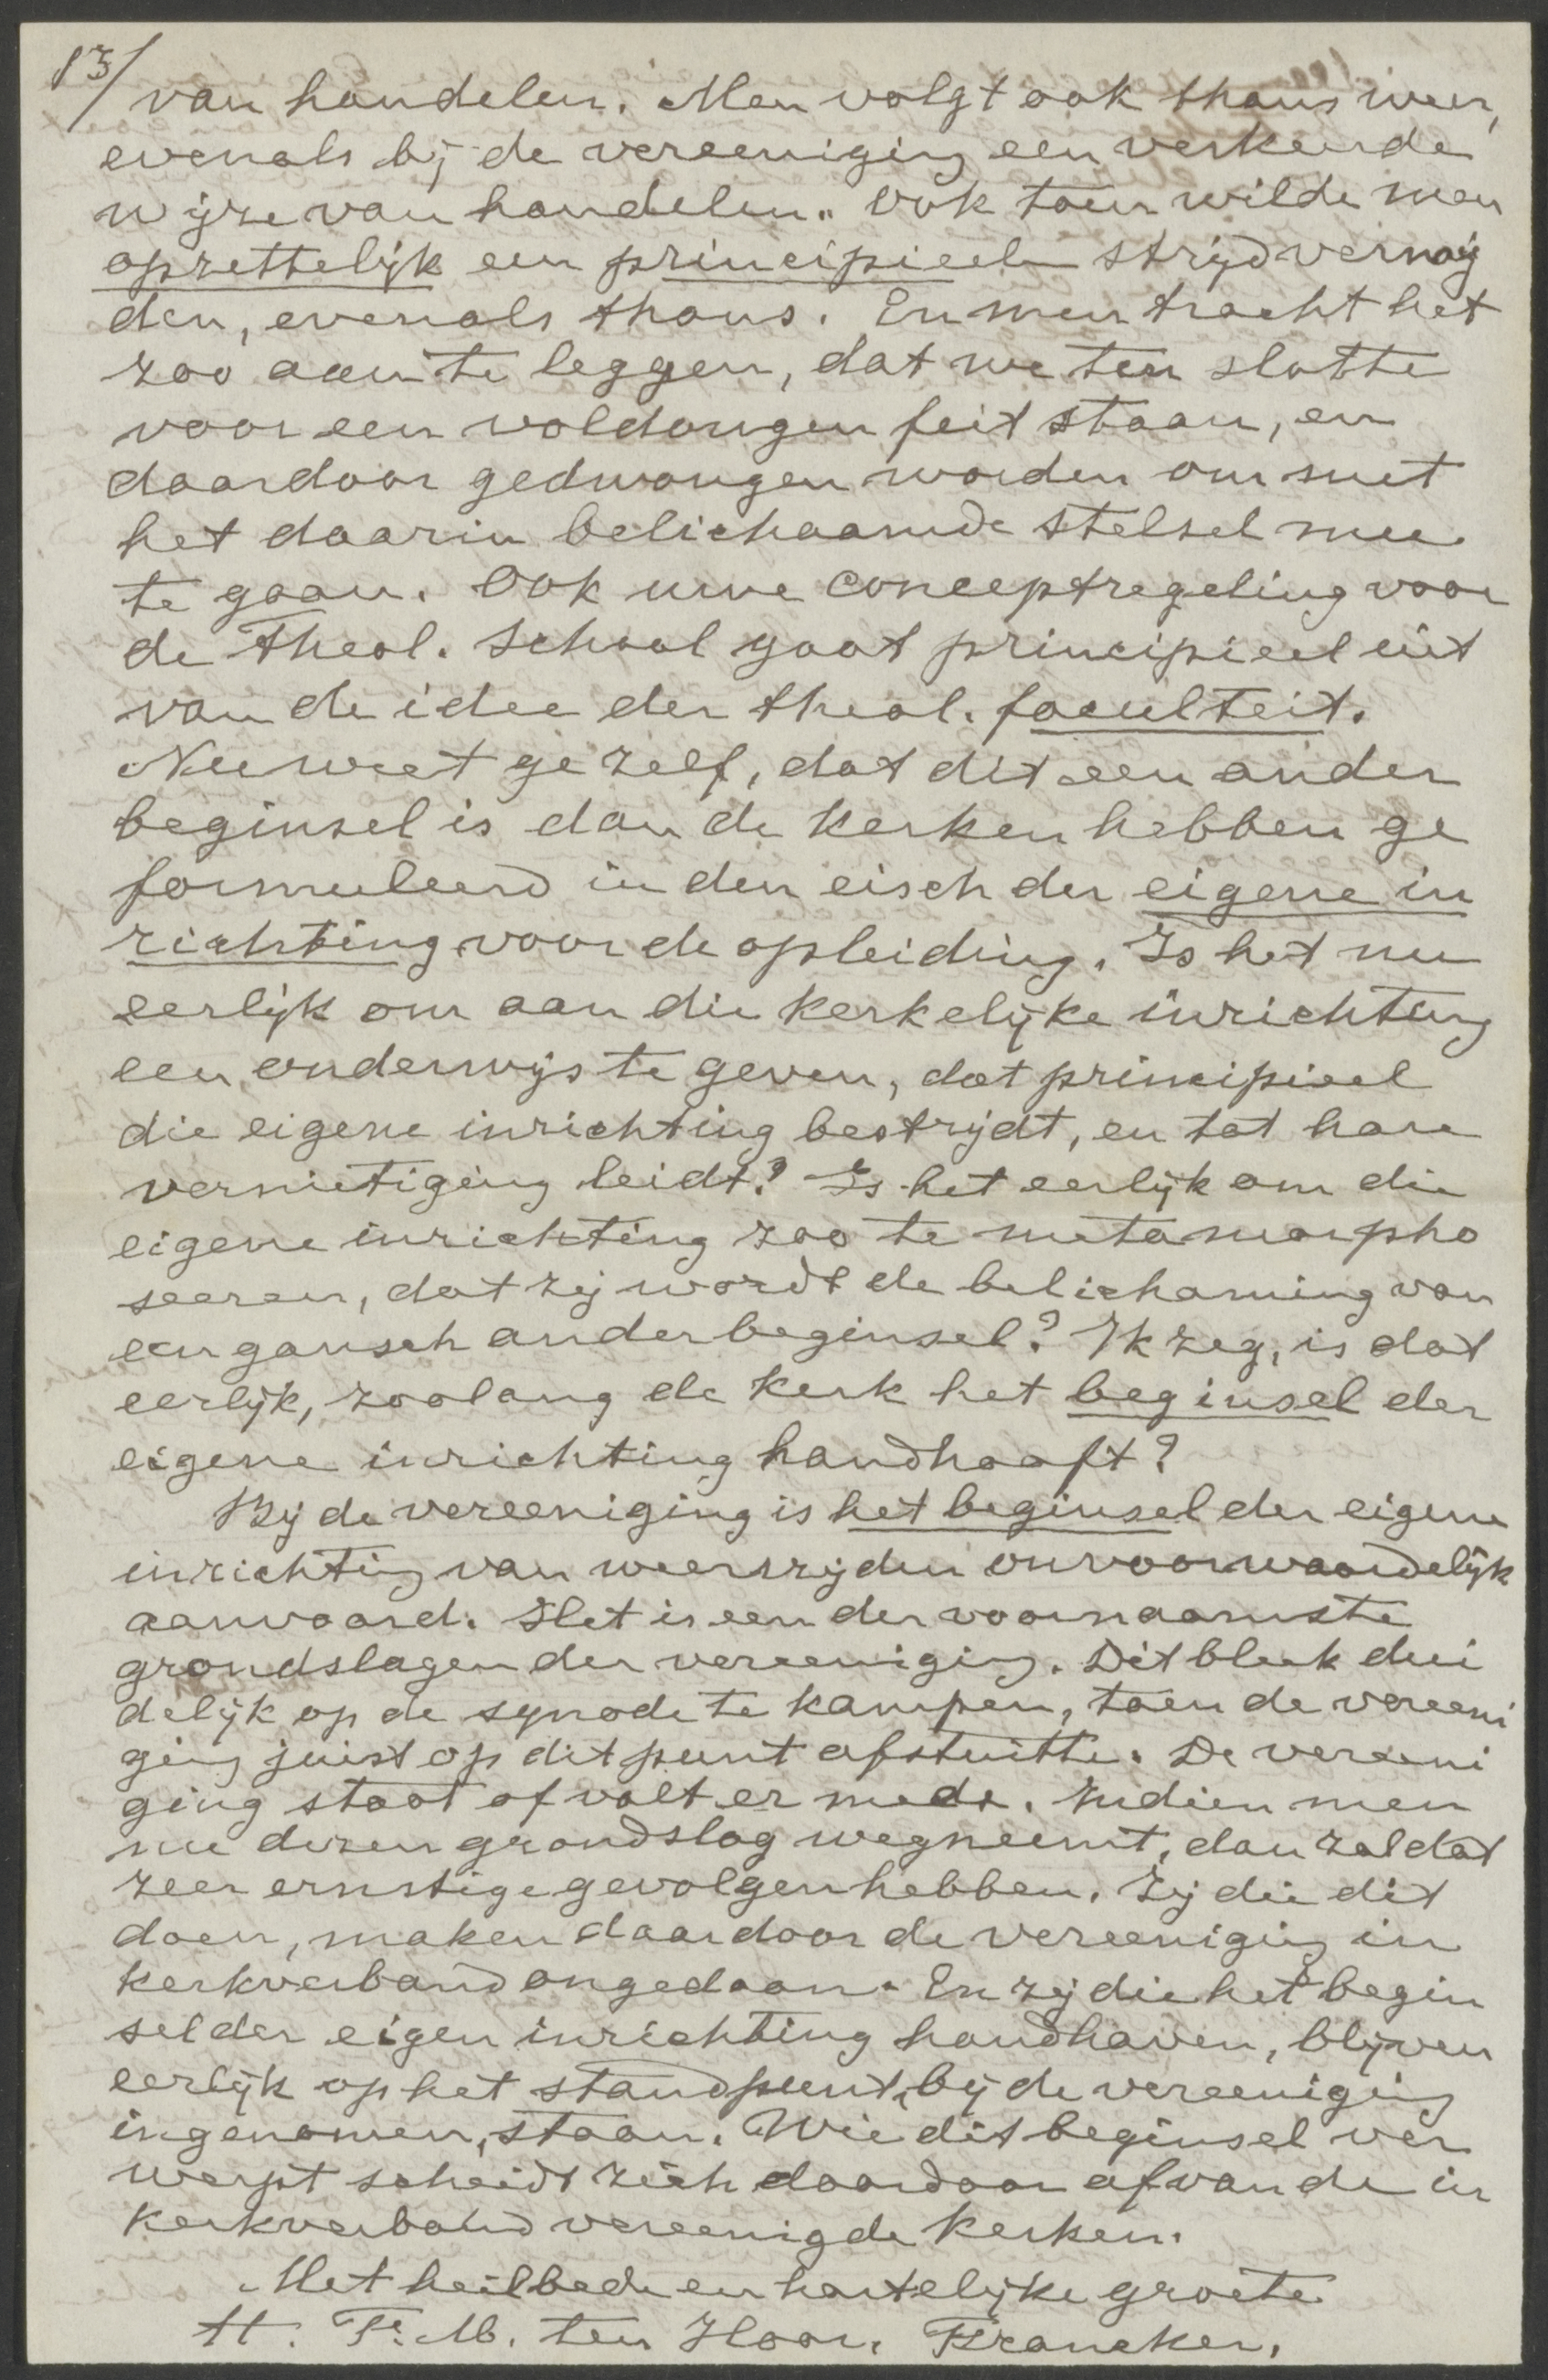 13/
van handelen. Men volgt ook thans weer,
evenals bij de vereeniging een verkeerde
wijze van handelen. Ook toen wilde men
opzettelijk een principieele strijd vermij
den, evenals thans. En men tracht het
zoo aan te leggen, dat we ten slotte
voor een voldongen feit staan, en
daardoor gedwongen worden om met
het daarin belichaamde stelsel mee
te gaan. Ook uwe conceptregeling voor
de Theol. School gaat principieel uit
van de idee der theol. faculteit.
Nu weet ge zelf, dat dit een ander
beginsel is dan de Kerken hebben ge
formuleerd in den eisch der eigene in
richting voor de opleiding. Is het nu
eerlijk om aan die Kerkelijke inrichting
een onderwijs te geven, dat principieel
die eigene inrichting bestrijdt, en tot hare
vernietiging leidt? Is het eerlijk om die
eigene inrichting zoo te metamorpho
seeren, dat zij wordt de belichaming van
een gansch ander beginsel? Ik zeg, is dat
eerlijk, zoolang de Kerk het beginsel der
eigene inrichting handhaaft?
Bij de vereeniging is het beginsel der eigene
inrichting van weerszijden onvoorwaardelijk
aanvaard. Het is een der voornaamste
grondslagen der vereeniging. Dit bleek dui
delijk op de synode te Kampen, toen de vereeni
ging juist op dit punt afstuitte. De vereeni
ging staat of valt er mede. Indien men
nu dezen grondslag wegneemt, dan zal dat
zeer ernstige gevolgen hebben. Zij die dit
doen, maken daardoor de vereeniging in
Kerkverband ongedaan. En zij die het begin
sel der eigen inrichting handhaven, blijven
eerlijk op het standpunt, bij de vereeniging
ingenomen, staan. Wie dit beginsel ver
werpt scheidt zich daardoor af van de in
Kerkverband vereenigde Kerken.
Met heilbede en hartelijke groete
tt. F. M. ten Hoor. Franeker.